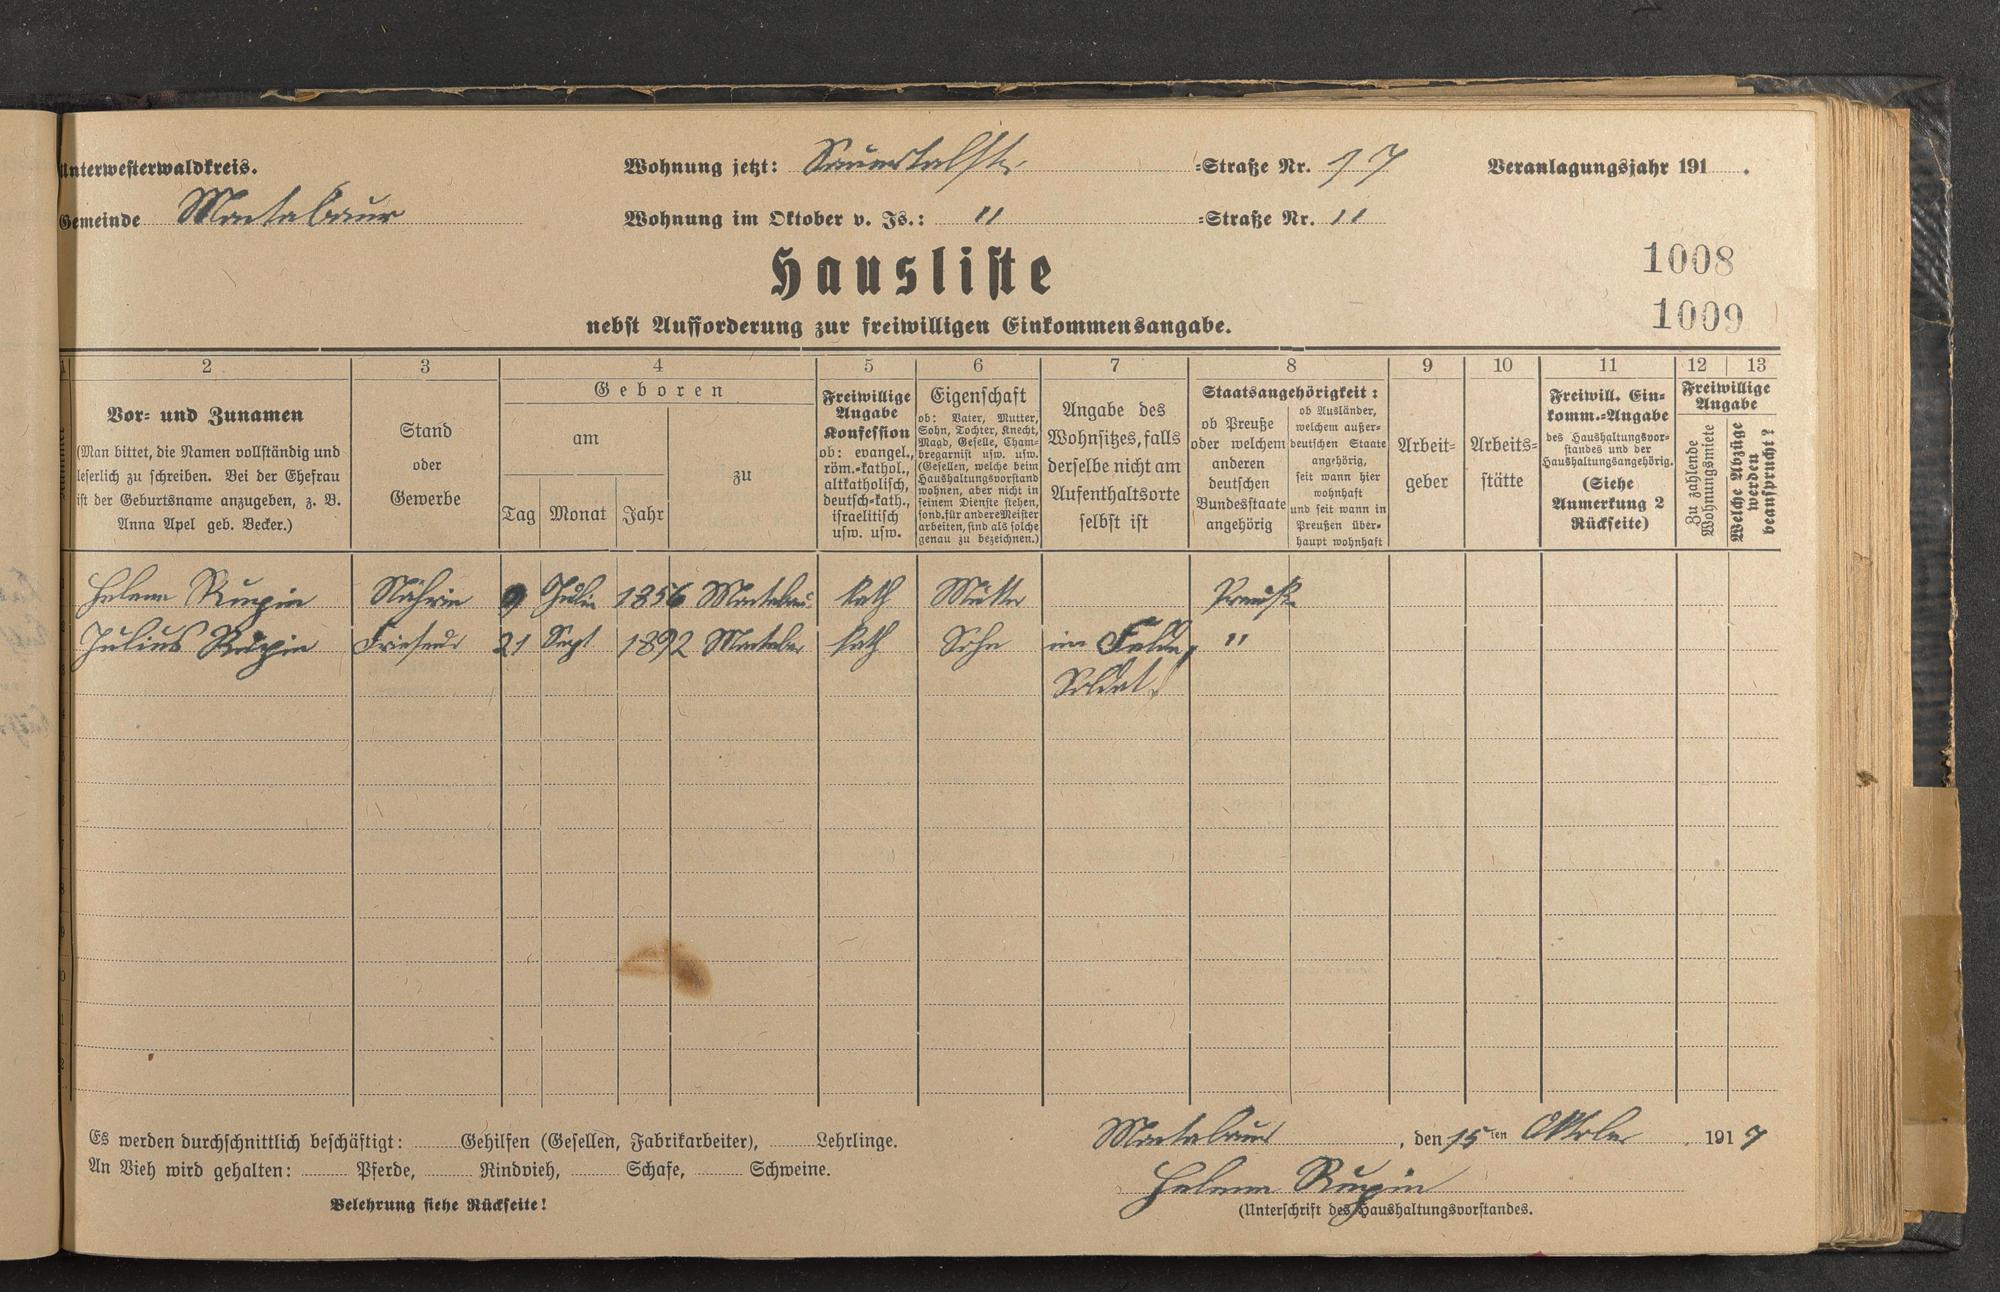 Unterwesterwaldkreis.
Wohnung jetzt: Sauertalstr. =Straße Nr. 17
Veranlagungsjahr 191 .
Gemeinde Montabaur
Wohnung im Oktober v. Js.: " =Straße Nr. "
Hausliste
1008
1009
nebst Aufforderung zur freiwilligen Einkommensangabe.
1 2 3 4 5 6 7 8 9 10 11 12 13
Nummer
Vor- und Zunamen
(Man bittet, die Namen vollständig und
leserlich zu schreiben. Bei der Ehefrau
ist der Geburtsname anzugeben, z. B.
Anna Apel geb. Becker.)
Stand
oder
Gewerbe
Geboren
am
Tag Monat Jahr
zu
Freiwillige
Angabe
Konfession
ob: evangel.,
röm.-kathol.,
altkatholisch,
deutsch-kath.,
israelitisch
usw. usw.
Eigenschaft
ob: Vater, Mutter,
Sohn, Tochter, Knecht,
Magd, Geselle, Cham-
bregarnist usw. usw.
(Gesellen, welche beim
Haushaltungsvorstand
wohnen, aber nicht in
seinem Dienste stehen,
sond. für andere Meister
arbeiten, sind als solche
genau zu bezeichnen.)
Angabe des
Wohnsitzes, falls
derselbe nicht am
Aufenthaltsorte
selbst ist
Staatsangehörigkeit:
ob Preuße
oder welchem
anderen
deutschen
Bundesstaate
angehörig
ob Ausländer,
welchem außer-
deutschen Staate
angehörig,
seit wann hier
wohnhaft
und seit wann in
Preußen über-
haupt wohnhaft
Arbeit-
geber
Arbeits-
stätte
Freiwill. Ein-
komm.-Angabe
des Haushaltungsvor-
standes und der
Haushaltungsangehörig.
(Siehe
Anmerkung 2
Rückseite)
Freiwillige
Angabe
Zu zahlende
Wohnungsmiete
Welche Abzüge
werden
beansprucht?
Helena Rupin Nährin 9 Juli 1856 Montabaur kath Mutter Preuße
Julius Rupin Friseur 21 Sept 1892 Montabaur kath Sohn im Felde, "
Soldat!
Es werden durchschnittlich beschäftigt: Gehilfen (Gesellen, Fabrikarbeiter), Lehrlinge.
An Vieh wird gehalten: Pferde, Rindvieh, Schafe, Schweine.
Belehrung siehe Rückseite!
Montabaur, den 15ten Oktober 1917
Helena Rupin
(Unterschrift des Haushaltungsvorstandes.